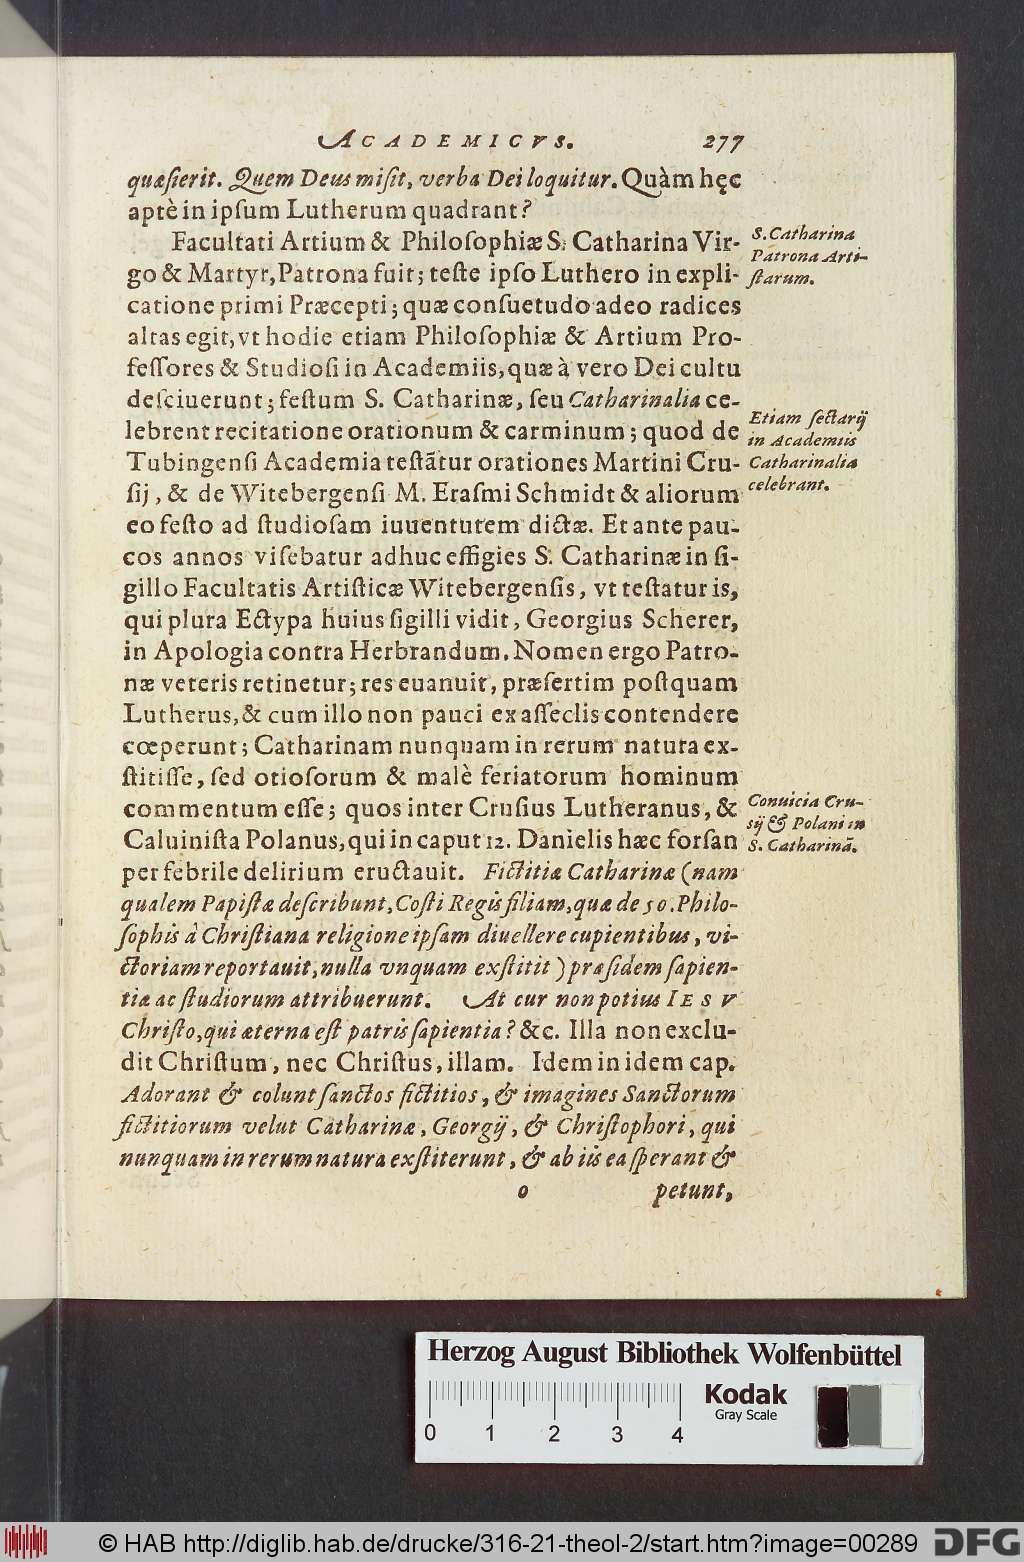 ACADEMICVS. 277
quæſierit. Quem Deus miſit, verba Dei loquitur. Quàm hęc
aptè in ipſum Lutherum quadrant?
Facultati Artium & Philoſophiæ S. Catharina Vir-
go & Martyr, Patrona fuit; teſte ipſo Luthero in expli-
catione primi Præcepti; quæ conſuetudo adeo radices
altas egit, vt hodie etiam Philoſophiæ & Artium Pro-
feſſores & Studioſi in Academiis, quæ à vero Dei cultu
deſciuerunt; feſtum S. Catharinæ, ſeu Catharinalia ce-
lebrent recitatione orationum & carminum; quod de
Tubingenſi Academia teſtãtur orationes Martini Cru-
ſij, & de Witebergenſi M. Eraſmi Schmidt & aliorum
eo feſto ad ſtudioſam iuuentutem dictæ. Et ante pau-
cos annos viſebatur adhuc effigies S. Catharinæ in ſi-
gillo Facultatis Artiſticæ Witebergenſis, vt teſtatur is,
qui plura Ectypa huius ſigilli vidit, Georgius Scherer,
in Apologia contra Herbrandum. Nomen ergo Patro-
næ veteris retinetur; res euanuit, præſertim poſtquam
Lutherus, & cum illo non pauci ex aſſeclis contendere
cœperunt; Catharinam nunquam in rerum natura ex-
ſtitiſſe, ſed otioſorum & malè feriatorum hominum
commentum eſſe; quos inter Cruſius Lutheranus, &
Caluiniſta Polanus, qui in caput 12. Danielis hæc forſan
per febrile delirium eructauit. Fictitiæ Catharinæ (nam
qualem Papiſtæ deſcribunt, Coſti Regis filiam, quæ de 50. Philo-
ſophis à Chriſtiana religione ipſam diuellere cupientibus, vi-
ctoriam reportauit, nulla vnquam exſtitit) præſidem ſapien-
tiæ ac ſtudiorum attribuerunt. At cur non potius IESV
Chriſto, qui æterna eſt patris ſapientia? &c. Illa non exclu-
dit Chriſtum, nec Chriſtus, illam. Idem in idem cap.
Adorant & colunt ſanctos fictitios, & imagines Sanctorum
fictitiorum velut Catharinæ, Georgij, & Chriſtophori, qui
nunquam in rerum natura exſtiterunt, & ab iis ea ſperant &
o petunt,
S. Catharina
Patrona Arti-
ſtarum.
Etiam ſectarij
in Academiis
Catharinalia
celebrant.
Conuicia Cru-
ſij & Polani in
S. Catharinã.
Herzog August Bibliothek Wolfenbüttel
0 1 2 3 4
Kodak
Gray Scale
© HAB http://diglib.hab.de/drucke/316-21-theol-2/start.htm?image=00289
DFG